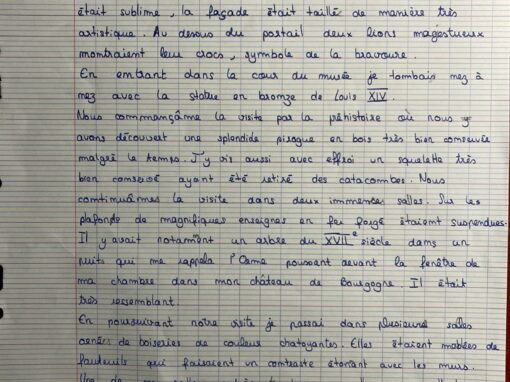 était sublime, la façade était taillé de manière très
artistique. Au dessus du portail deux lions magestueux
montraient leur crocs, symbole de la bravoure.
En entrant dans la cour du musée je tombais mez à
mez avec la statue en bronze de Louis XIV.
Nous commmançâme la visite par la préhistoire où nous y
avons découvert une splendide pirogue en bois très bien conservée
malgré le temps. J'y vis aussi avec effroi un squelette très
bien conservé ayant été retiré des catacombes. Nous
continuâmes la visite dans deux immenses salles. Sur les
plafonds de magnifiques enseignes en fer forgé étaient suspendues.
Il y avait notament un arbre du XVIIe siècle dans un
puits qui me rappela l'Orme poussant devant la fenêtre de
ma chambre dans mon château de Bourgogne. Il était
très ressemblant.
En poursuivant notre visite je passai dans plusieurs salles
ornées de boiseries de couleur chatoyantes. Elles étaient mablées de
fauteuils qui faisaient un contraste étonant avec les murs.